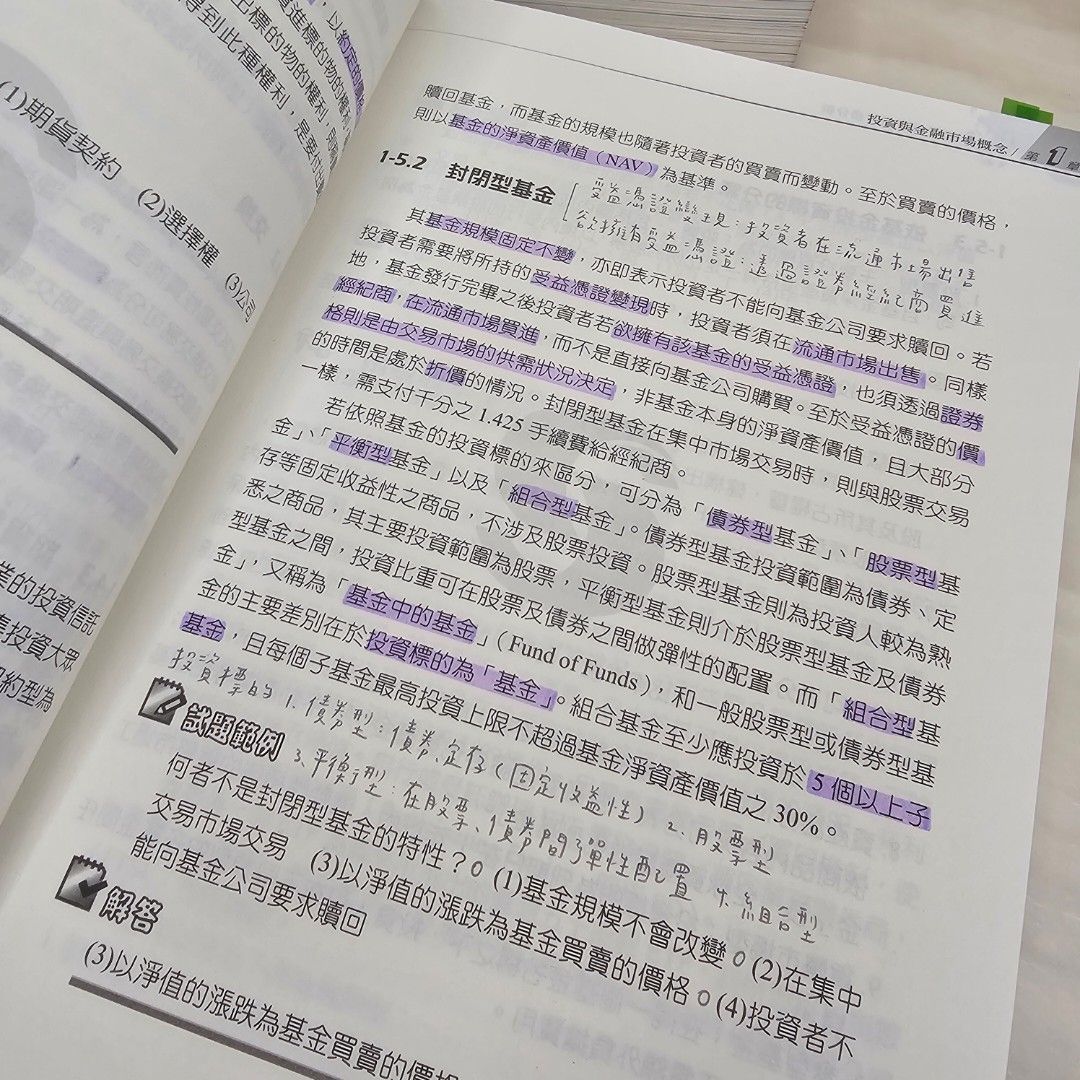 投資與金融市場概念 / 第 1 章
贖回基金，而基金的規模也隨著投資者的買賣而變動。至於買賣的價格，
則以基金的淨資產價值（NAV）為基準。
1-5.2 封閉型基金
受益憑證變現：投資者在流通市場出售
欲擁有受益憑證：透過證券經紀商買進
其基金規模固定不變，亦即表示投資者不能向基金公司要求贖回。若
投資者需要將所持的受益憑證變現時，投資者須在流通市場出售。同樣
地，基金發行完畢之後投資者若欲擁有該基金的受益憑證，也須透過證券
經紀商，在流通市場買進，而不是直接向基金公司購買。至於受益憑證的價
格則是由交易市場的供需狀況決定，非基金本身的淨資產價值，且大部分
的時間是處於折價的情況。封閉型基金在集中市場交易時，則與股票交易
一樣，需支付千分之 1.425 手續費給經紀商。
若依照基金的投資標的來區分，可分為「債券型基金」、「股票型基
金」、「平衡型基金」以及「組合型基金」。債券型基金投資範圍為債券、定
存等固定收益性之商品，不涉及股票投資。股票型基金則為投資人較為熟
悉之商品，其主要投資範圍為股票，平衡型基金則介於股票型基金及債券
型基金之間，投資比重可在股票及債券之間做彈性的配置。而「組合型基
金」，又稱為「基金中的基金」（Fund of Funds），和一般股票型或債券型基
金的主要差別在於投資標的為「基金」。組合基金至少應投資於 5 個以上子
基金，且每個子基金最高投資上限不超過基金淨資產價值之 30%。
投資標的 1. 債券型：債券、定存（固定收益性） 2. 股票型
3. 平衡型：在股票、債券間彈性配置 4. 組合型
試題範例
何者不是封閉型基金的特性？ (1)基金規模不會改變。(2)在集中
交易市場交易 (3)以淨值的漲跌為基金買賣的價格。(4)投資者不
能向基金公司要求贖回
解答
(3)以淨值的漲跌為基金買賣的價格
(1)期貨契約 (2)選擇權 (3)公司
得到此種權利，是要付出
業的投資信託
集投資大眾
契約型為